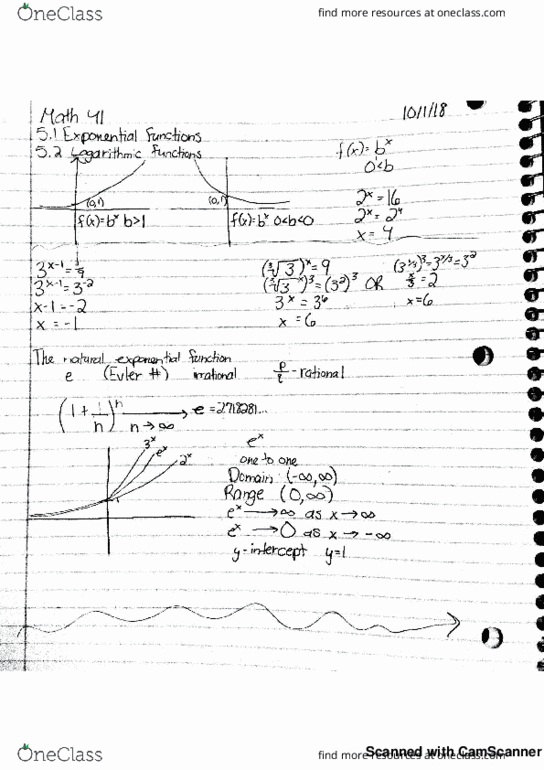 OneClass
find more resources at oneclass.com
Math 41
10/1/18
5.1 Exponential functions
5.2 Logarithmic functions
f(x)= bˣ
0<b
(0,1)
(0,1)
f(x)=bˣ b>1
f(x)=bˣ 0<b<0
2ˣ=16
2ˣ= 2⁴
x= 4
3ˣ⁻¹=1/9
3ˣ⁻¹=3⁻²
x-1=-2
x = -1
(∛3)ˣ=9
(∛3ˣ)³=(3²)³ OR
3ˣ=3⁶
x=6
x/3=2
x=6
The natural exponential function
e (Euler #) irrational p/q-rational
(1+1/n)ⁿ n→∞ → e =2.718281...
3ˣ
eˣ
2ˣ
eˣ
one to one
Domain (-∞,∞)
Range (0,∞)
eˣ→∞ as x→∞
eˣ→0 as x→-∞
y-intercept y=1
Scanned with CamScanner
OneClass
find more resources at oneclass.com